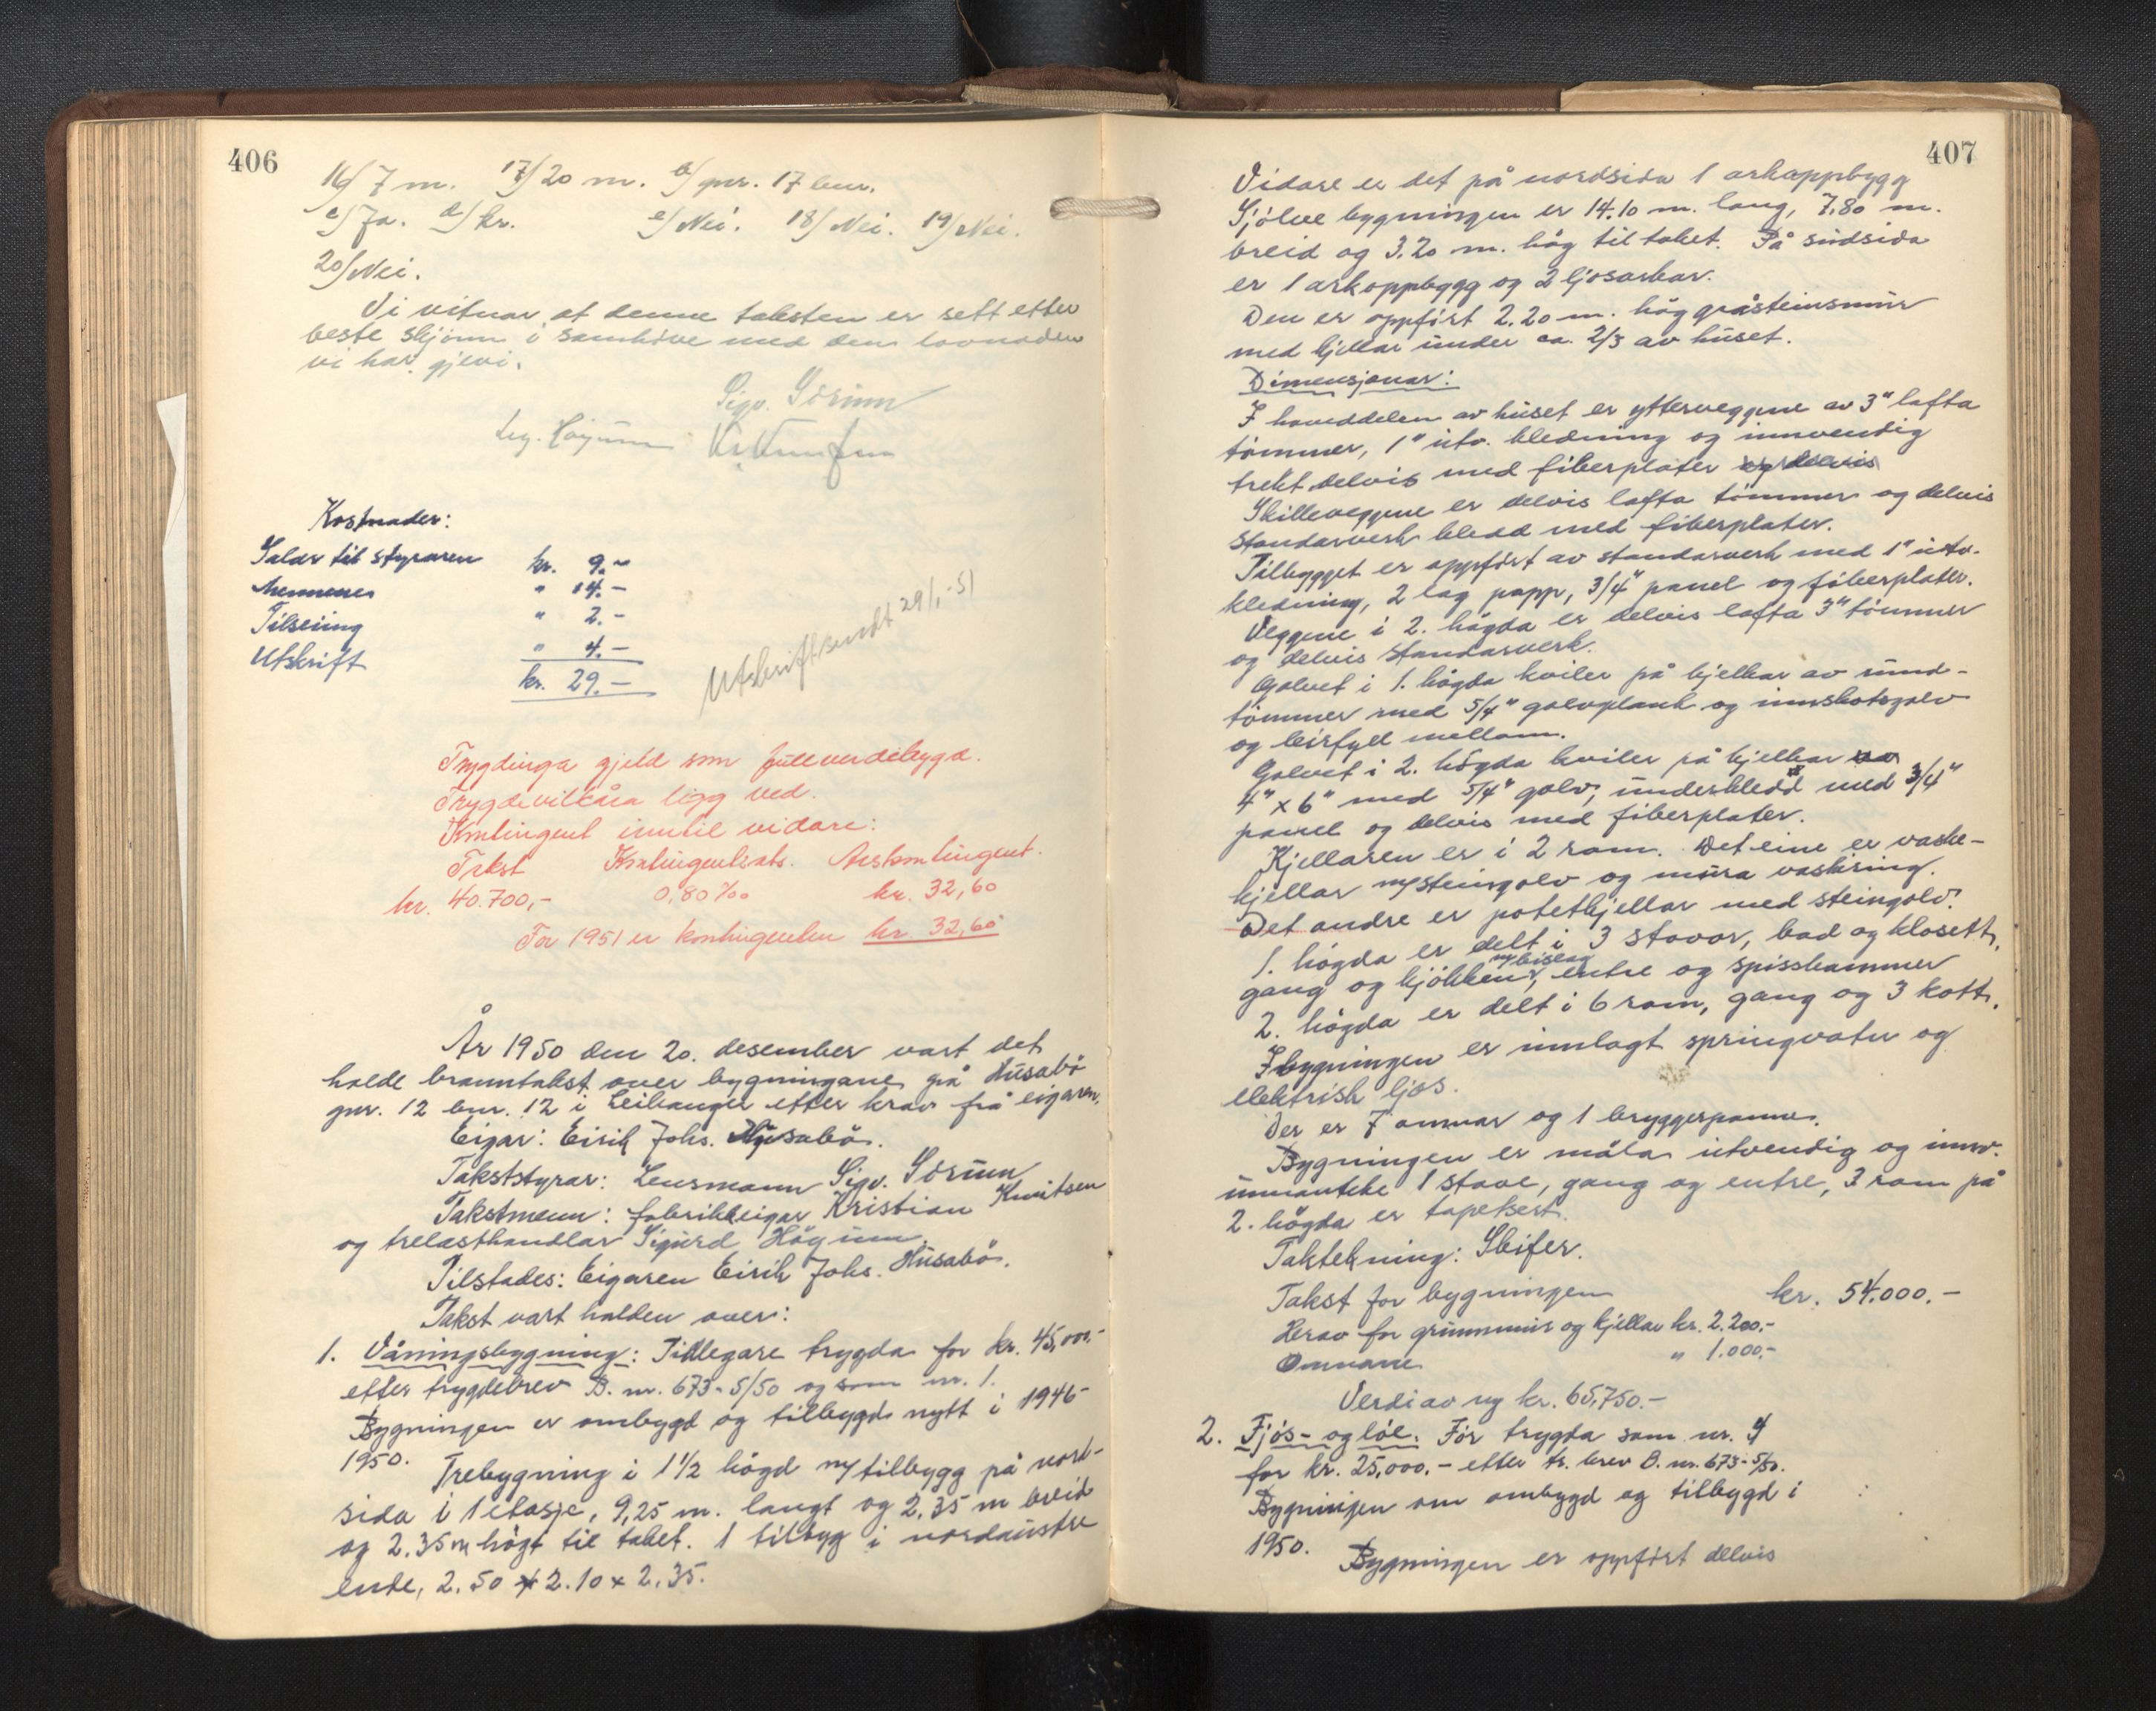 406
16/ 7 m. 17/ 20 m. b/ gnr. 17 bnr.
c/ Ja. d/ kr. e/ Nei. 18/ Nei. 19/ Nei.
20/ Nei.
Vi vitnar at denne taksten er sett etter
beste skjønn i samhöve med den lovnaden
vi har gjevi.
Sigv. Sörum
Sig. Höyum Kr. Knutsen
Kostnader:
Salær til styraren kr. 9.-
Mennene " 14.-
Tilseing " 2.-
Utskrift " 4.-
kr. 29.-
Utskrift sendt 29/1-51
Trygdinga gjeld som fullverdetrygd.
Trygdevilkåra ligg ved.
Kontingent inntil vidare:
Takst Kontingentsats. Årskontingent.
kr. 40.700,- 0,80‰ kr. 32,60
For 1951 er kontingenten kr. 32,60
År 1950 den 20. desember vart det
halde branntakst over bygningane på Husabö
gnr. 12 bnr. 12 i Leikanger etter krav frå eigaren.
Eigar: Eirik Johs. Husabö.
Takststyrar: Lensmann Sigv. Sörum
Takstmenn: fabrikkeigar Kristian Knutsen
og trelasthandlar Sigurd Höyum.
Tilstades: Eigaren Eirik Johs. Husabö.
Takst vart halden over:
1. Våningsbygning: Tidlegare trygda for kr. 45,000.-
etter trygdebrev B. nr. 673-5/50 og som nr. 1.
Bygningen er ombygd og tilbygd nytt i 1946-
1950.
Trebygning i 1 1/2 högd m/ tilbygg på nord-
sida i 1 etasje, 9,25 m. langt og 2,35 m breid
og 2.35 m högt til taket. 1 tilbyg i nordaustre
ende, 2.50 x 2.10 x 2.35.
407
Vidare er det på nordsida 1 arkoppbygg
Sjölve bygningen er 14.10 m. lang, 7.80 m.
breid og 3.20 m. hög til taket. På sudsida
er 1 arkoppbygg og 2 ljosarkar.
Den er oppfört 2.20 m. hög gråsteinsmur
med kjellar under ca. 2/3 av huset.
Dimensjonar:
I hoveddelen av huset er ytterveggene av 3" lafta
tömmer, 1" utv. kledning og innvendig
trekt delvis med fiberplater og delvis
Skilleveggene er delvis lafta tömmer og delvis
standarverk kledd med fiberplater.
Tilbygget er oppfört av standarverk med 1" utv.
kledning, 2 lag papp, 3/4" panel og fiberplater.
Veggene i 2. högda er delvis lafta 3" tömmer
og delvis standarverk.
Golvet i 1. högda kviler på bjelkar av rund-
tömmer med 5/4" golvplank og innskotsgolv
og leirfyll mellom.
Golvet i 2. högda kviler på bjelkar av
4" x 6" med 5/4" golv, underkledd med 3/4"
panel og delvis med fiberplater.
Kjellaren er i 2 rom. Det eine er vaske-
kjellar m/ steingolv og mura vaskering.
Det andre er potetkjellar med steingolv.
1. högda er delt i 3 stovor, bad og klosett,
gang og kjökken m/ bislag, entre og spisskammer
2. högda er delt i 6 rom, gang og 3 kott.
I bygningen er innlagt springvatn og
elektrisk ljos.
Der er 7 omnar og 1 bryggerpanne.
Bygningen er måla utvendig og innv.
unnanteke 1 stove, gang og entre, 3 rom på
2. högda er tapetsert.
Taktekning: Skifer.
Takst for bygningen kr. 54.000.-
Herav for grunnmur og kjellar kr. 2.200.-
Omnane " 1.000.-
Verdi av ny kr. 65,750.-
2. Fjös- og löe. För trygda som nr. 4
for kr. 25,000.- etter tr. brev B. nr. 673-5/50.
Bygningen om ombygd og tilbygd i
1950.
Bygningen er oppfört delvis